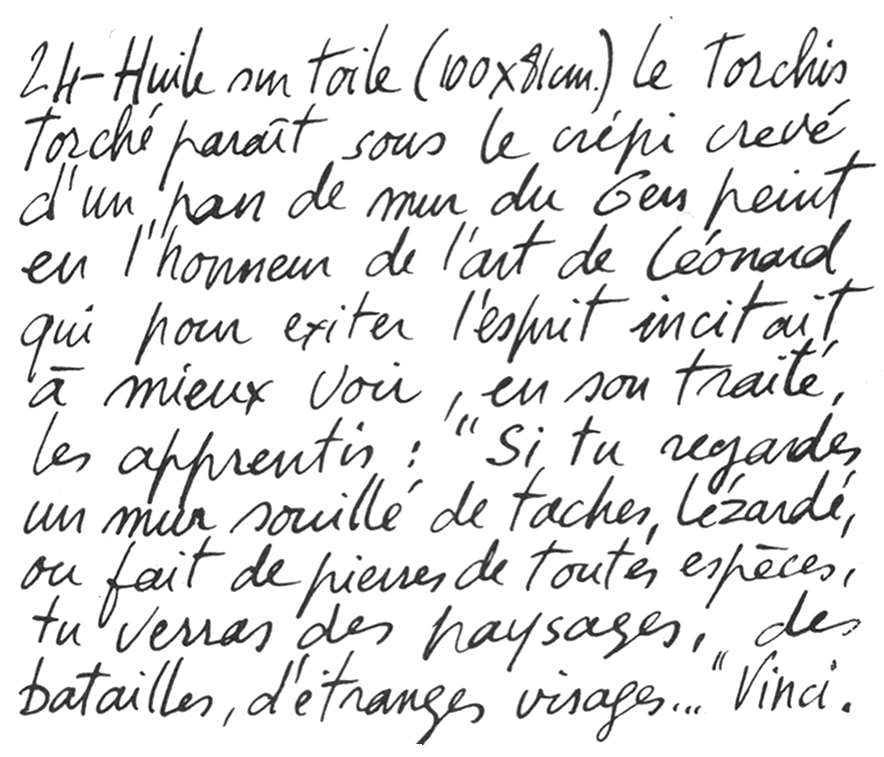 24-Huile sur toile (100x81cm.) Le Torchis
Torché paraît sous le crépi crevé
d'un pan de mur du Gers peint
en l'honneur de l'art de Léonard
qui pour exiter l'esprit incitait
à mieux voir, en son traité,
les apprentis : "Si tu regardes
un mur souillé de taches, lézardé,
ou fait de pierres de toutes espèces,
tu verras des paysages, des
batailles, d'étranges visages..." Vinci.